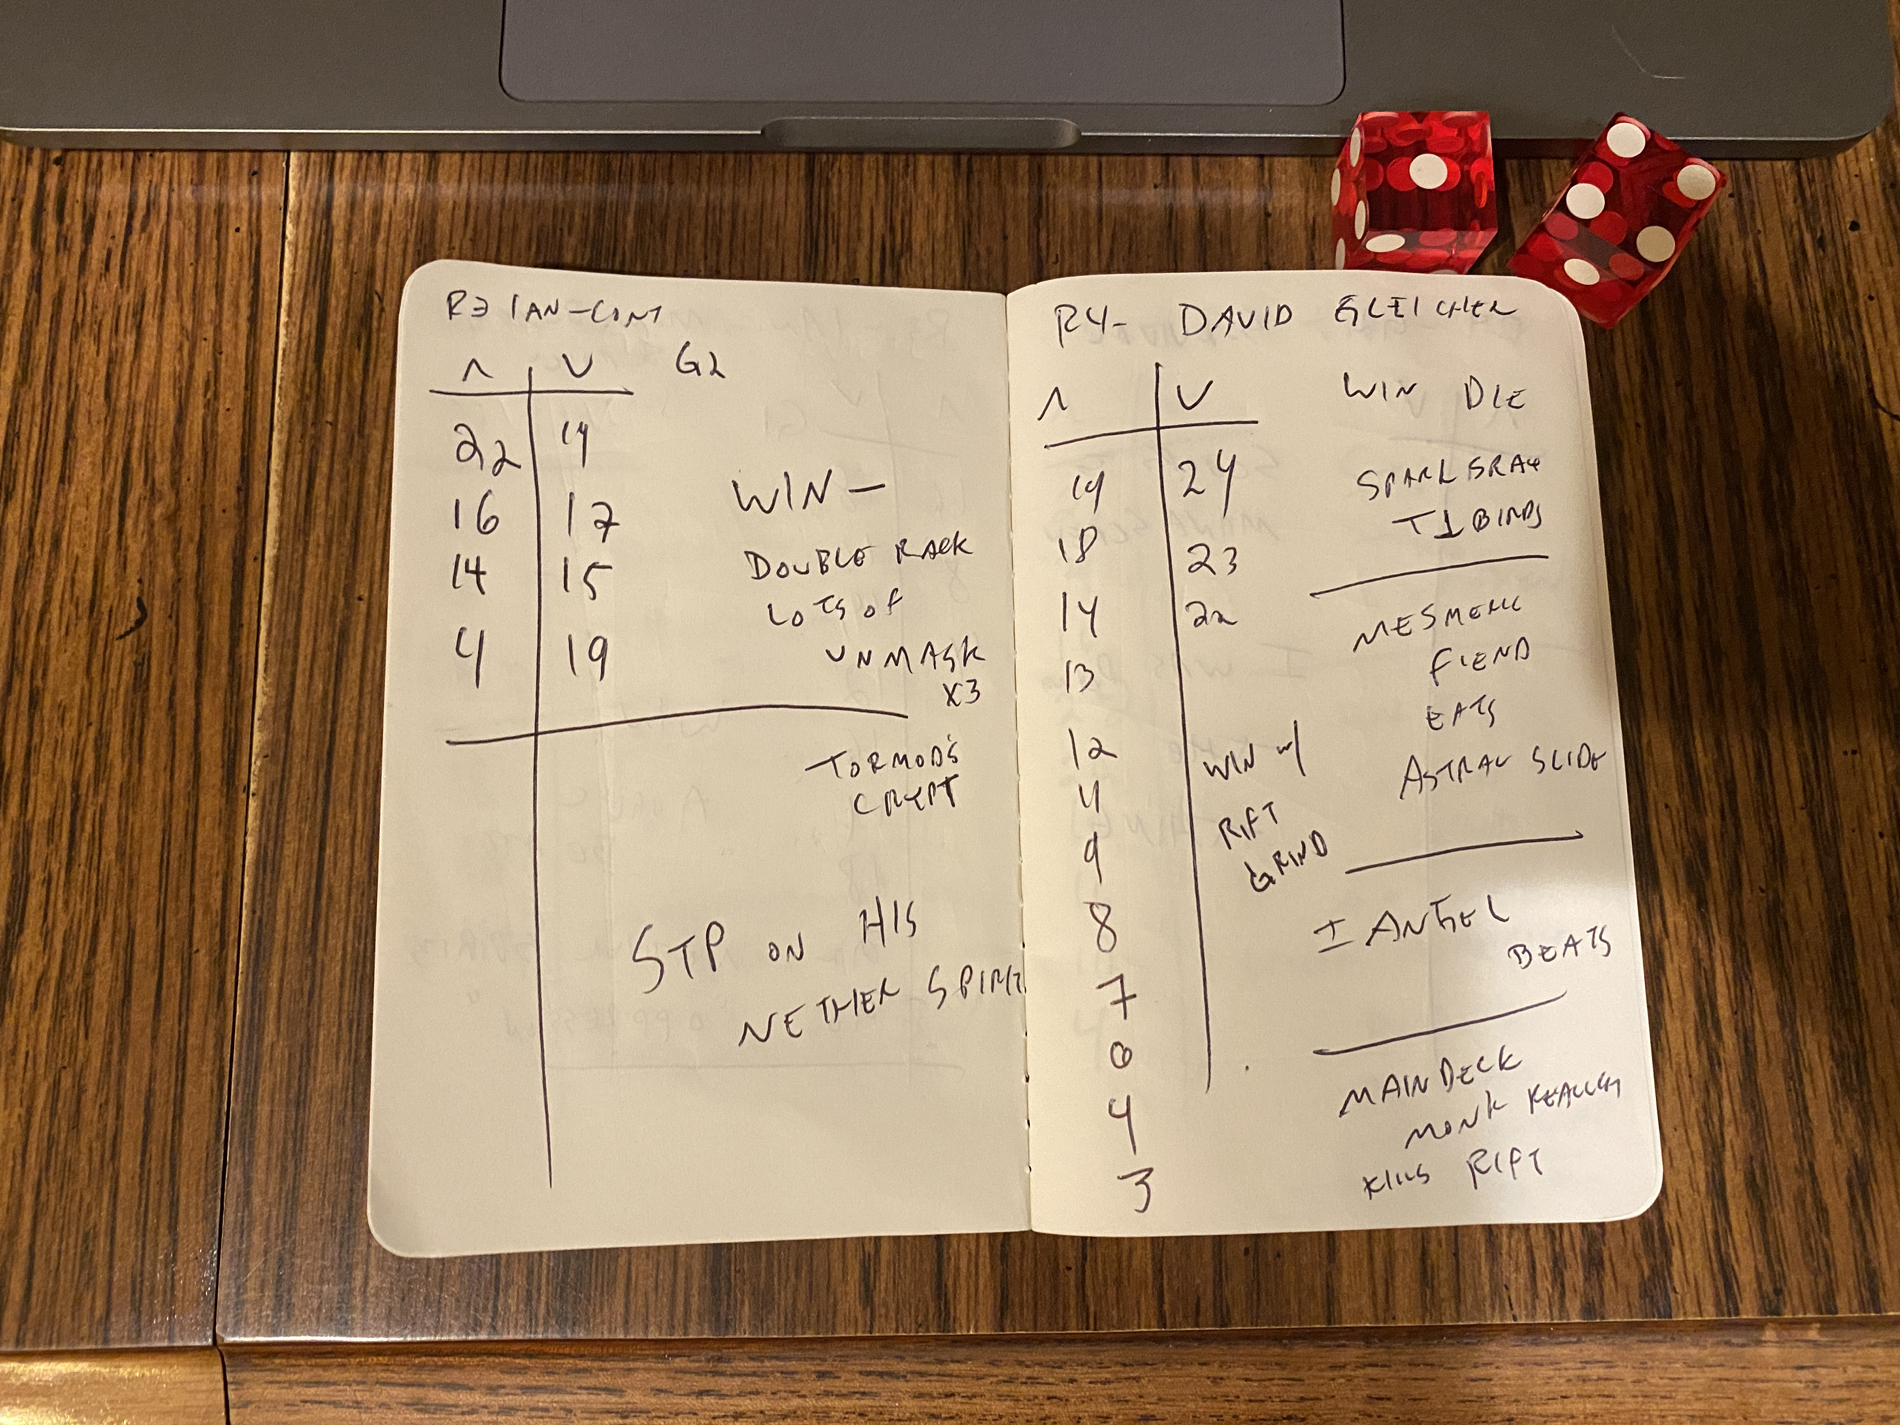 R3 IAN-CONT
G2
Λ V
22 19
16 17
14 15
4 19
WIN -
DOUBLE RACK
LOTS OF
UNMASK
X3
TORMOD'S
CRYPT
STP ON HIS
NETHER SPIRIT
R4- DAVID GLEICHER
Λ V
19 24
18 23
14 22
13
12
9
8
7
6
4
3
WIN W/
RIFT
GRIND
WIN DIE
SPARKSPRAY
T1 BIRDS
MESMERIC
FIEND
EATS
ASTRAL SLIDE
I ANGEL
BEATS
MAINDECK
MONK REALIST
KILLS RIFT